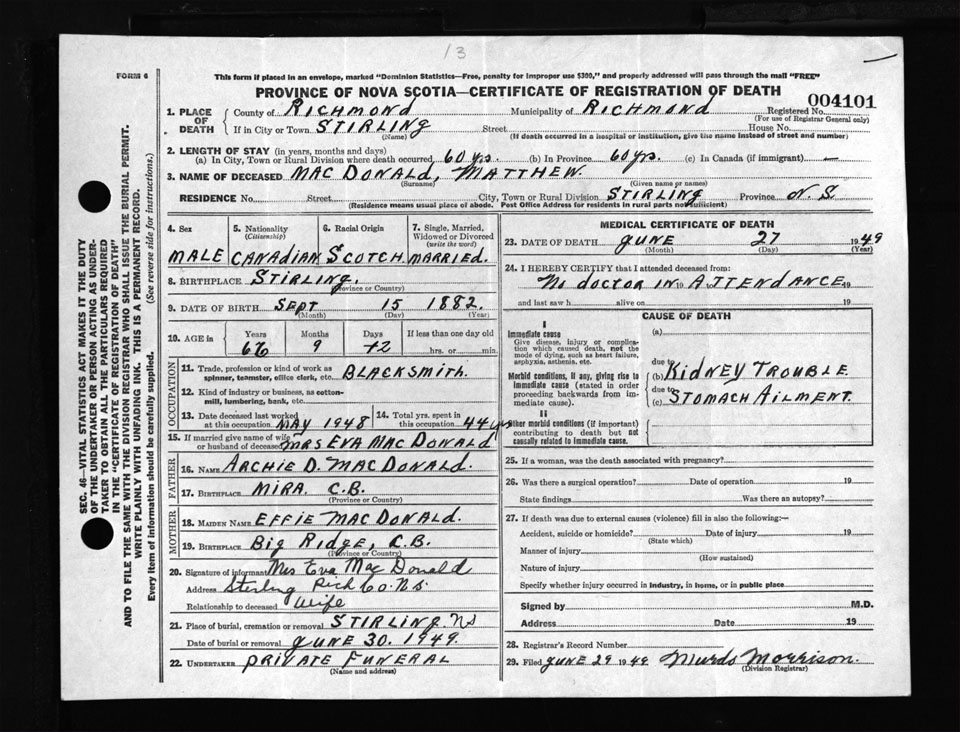 13
FORM 6
This form if placed in an envelope, marked "Dominion Statistics—Free, penalty for improper use $300," and properly addressed will pass through the mail "FREE"
PROVINCE OF NOVA SCOTIA—CERTIFICATE OF REGISTRATION OF DEATH
004101
1. PLACE OF DEATH County of RICHMOND Municipality of RICHMOND Registered No.
(For use of Registrar General only)
If in City or Town STIRLING Street House No.
(Name) (If death occurred in a hospital or institution, give the name instead of street and number)
2. LENGTH OF STAY (in years, months and days)
(a) In City, Town or Rural Division where death occurred 60 yrs. (b) In Province 60 yrs. (c) In Canada (if immigrant) —
3. NAME OF DECEASED MAC DONALD, MATTHEW.
(Surname) (Given name or names)
RESIDENCE No. Street City, Town or Rural Division STIRLING Province N.S.
(Residence means usual place of abode. Post Office Address for residents in rural parts not sufficient)
4. Sex 5. Nationality (Citizenship) 6. Racial Origin 7. Single, Married, Widowed or Divorced (write the word)
MALE CANADIAN SCOTCH MARRIED.
8. BIRTHPLACE STIRLING.
(Province or Country)
9. DATE OF BIRTH SEPT 15 1882.
(Month) (Day) (Year)
10. AGE in Years Months Days If less than one day old
66 9 12 hrs. or min.
OCCUPATION
11. Trade, profession or kind of work as spinner, teamster, office clerk, etc. BLACKSMITH.
12. Kind of industry or business, as cotton-mill, lumbering, bank, etc.
13. Date deceased last worked at this occupation MAY 1948 14. Total yrs. spent in this occupation 44 yrs
15. If married give name of wife or husband of deceased MRS EVA MAC DONALD
FATHER
16. NAME ARCHIE D. MAC DONALD.
17. BIRTHPLACE MIRA. C.B.
(Province or Country)
MOTHER
18. MAIDEN NAME EFFIE MAC DONALD.
19. BIRTHPLACE BIG RIDGE, C.B.
(Province or Country)
20. Signature of informant Mrs Eva Mac Donald
Address Sterling Rich Co. N.S.
Relationship to deceased Wife
21. Place of burial, cremation or removal STIRLING. NS
Date of burial or removal JUNE 30. 1949.
22. UNDERTAKER PRIVATE FUNERAL
(Name and address)
MEDICAL CERTIFICATE OF DEATH
23. DATE OF DEATH JUNE 27 1949
(Month) (Day) (Year)
24. I HEREBY CERTIFY that I attended deceased from:
No DOCTOR IN 19 to ATTENDANCE 19
and last saw h alive on 19
CAUSE OF DEATH
I
Immediate cause
Give disease, injury or complication which caused death, not the mode of dying, such as heart failure, asphyxia, asthenia, etc.
(a)
due to
Morbid conditions, if any, giving rise to immediate cause (stated in order proceeding backwards from immediate cause).
(b) KIDNEY TROUBLE
due to
(c) STOMACH AILMENT.
II
Other morbid conditions (if important) contributing to death but not causally related to immediate cause.
25. If a woman, was the death associated with pregnancy?
26. Was there a surgical operation? Date of operation 19
State findings Was there an autopsy?
27. If death was due to external causes (violence) fill in also the following:—
Accident, suicide or homicide? Date of injury 19
(State which)
Manner of injury
(How sustained)
Nature of injury
Specify whether injury occurred in industry, in home, or in public place
Signed by M.D.
Address Date 19
28. Registrar's Record Number
29. Filed JUNE 29 1949 Murdo Morrison.
(Division Registrar)
SEC. 46—VITAL STATISTICS ACT MAKES IT THE DUTY
OF THE UNDERTAKER OR PERSON ACTING AS UNDER-
TAKER TO OBTAIN ALL THE PARTICULARS REQUIRED
IN THE "CERTIFICATE OF REGISTRATION OF DEATH"
AND TO FILE THE SAME WITH THE DIVISION REGISTRAR WHO SHALL ISSUE THE BURIAL PERMIT.
WRITE PLAINLY WITH UNFADING INK. THIS IS A PERMANENT RECORD.
Every item of information should be carefully supplied. (See reverse side for instructions.)